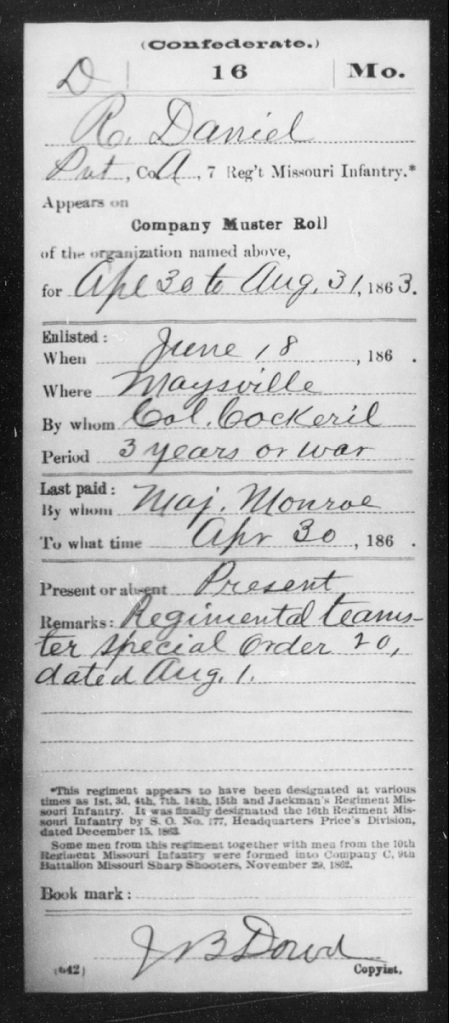 (Confederate.)
D | 16 | Mo.
R. Daniel
Pvt, Co. A, 7 Reg't Missouri Infantry.*
Appears on
Company Muster Roll
of the organization named above,
for Apl 30 to Aug. 31, 1863.
Enlisted:
When June 18, 186 .
Where Maysville
By whom Col. Cockeril
Period 3 years or war
Last paid:
By whom Maj. Monroe
To what time Apr 30, 186 .
Present or absent Present
Remarks: Regimental teams-
ter special order 20,
dated Aug. 1.
*This regiment appears to have been designated at various
times as 1st, 3d, 4th, 7th, 14th, 15th and Jackman's Regiment Mis-
souri Infantry. It was finally designated the 16th Regiment Mis-
souri Infantry by S. O. No. 177, Headquarters Price's Division,
dated December 15, 1863.
Some men from this regiment together with men from the 10th
Regiment Missouri Infantry were formed into Company C, 9th
Battalion Missouri Sharp Shooters, November 29, 1862.
Book mark:
J B Dowd
(642) Copyist.